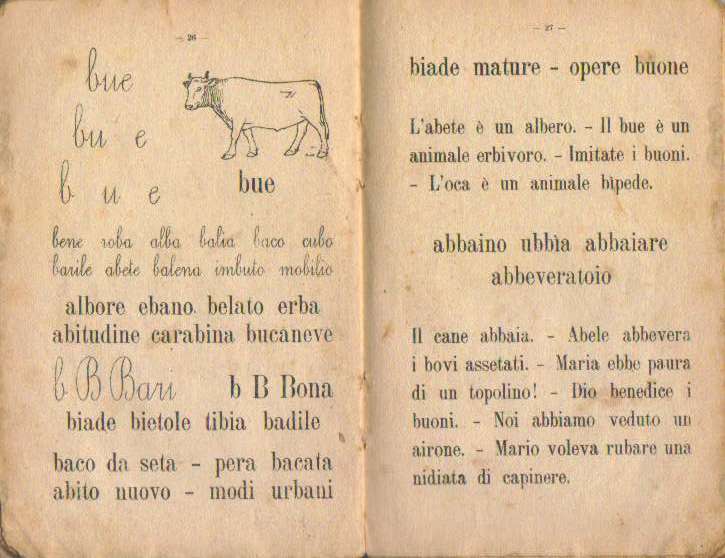 — 26 —
bue
bu e
b u e
bue
bene roba alba balia baco cubo
barile abete balena imbuto mobilio
albore ebano belato erba
abitudine carabina bucaneve
b B Bari b B Bona
biade bietole tibia badile
baco da seta – pera bacata
abito nuovo – modi urbani
— 27 —
biade mature – opere buone
L'abete è un albero. – Il bue è un
animale erbivoro. – Imitate i buoni.
– L'oca è un animale bìpede.
abbaino ubbìa abbaiare
abbeveratoio
Il cane abbaia. – Abele abbevera
i bovi assetati. – Maria ebbe paura
di un topolino! – Dio benedice i
buoni. – Noi abbiamo veduto un
airone. – Mario voleva rubare una
nidiata di capinere.